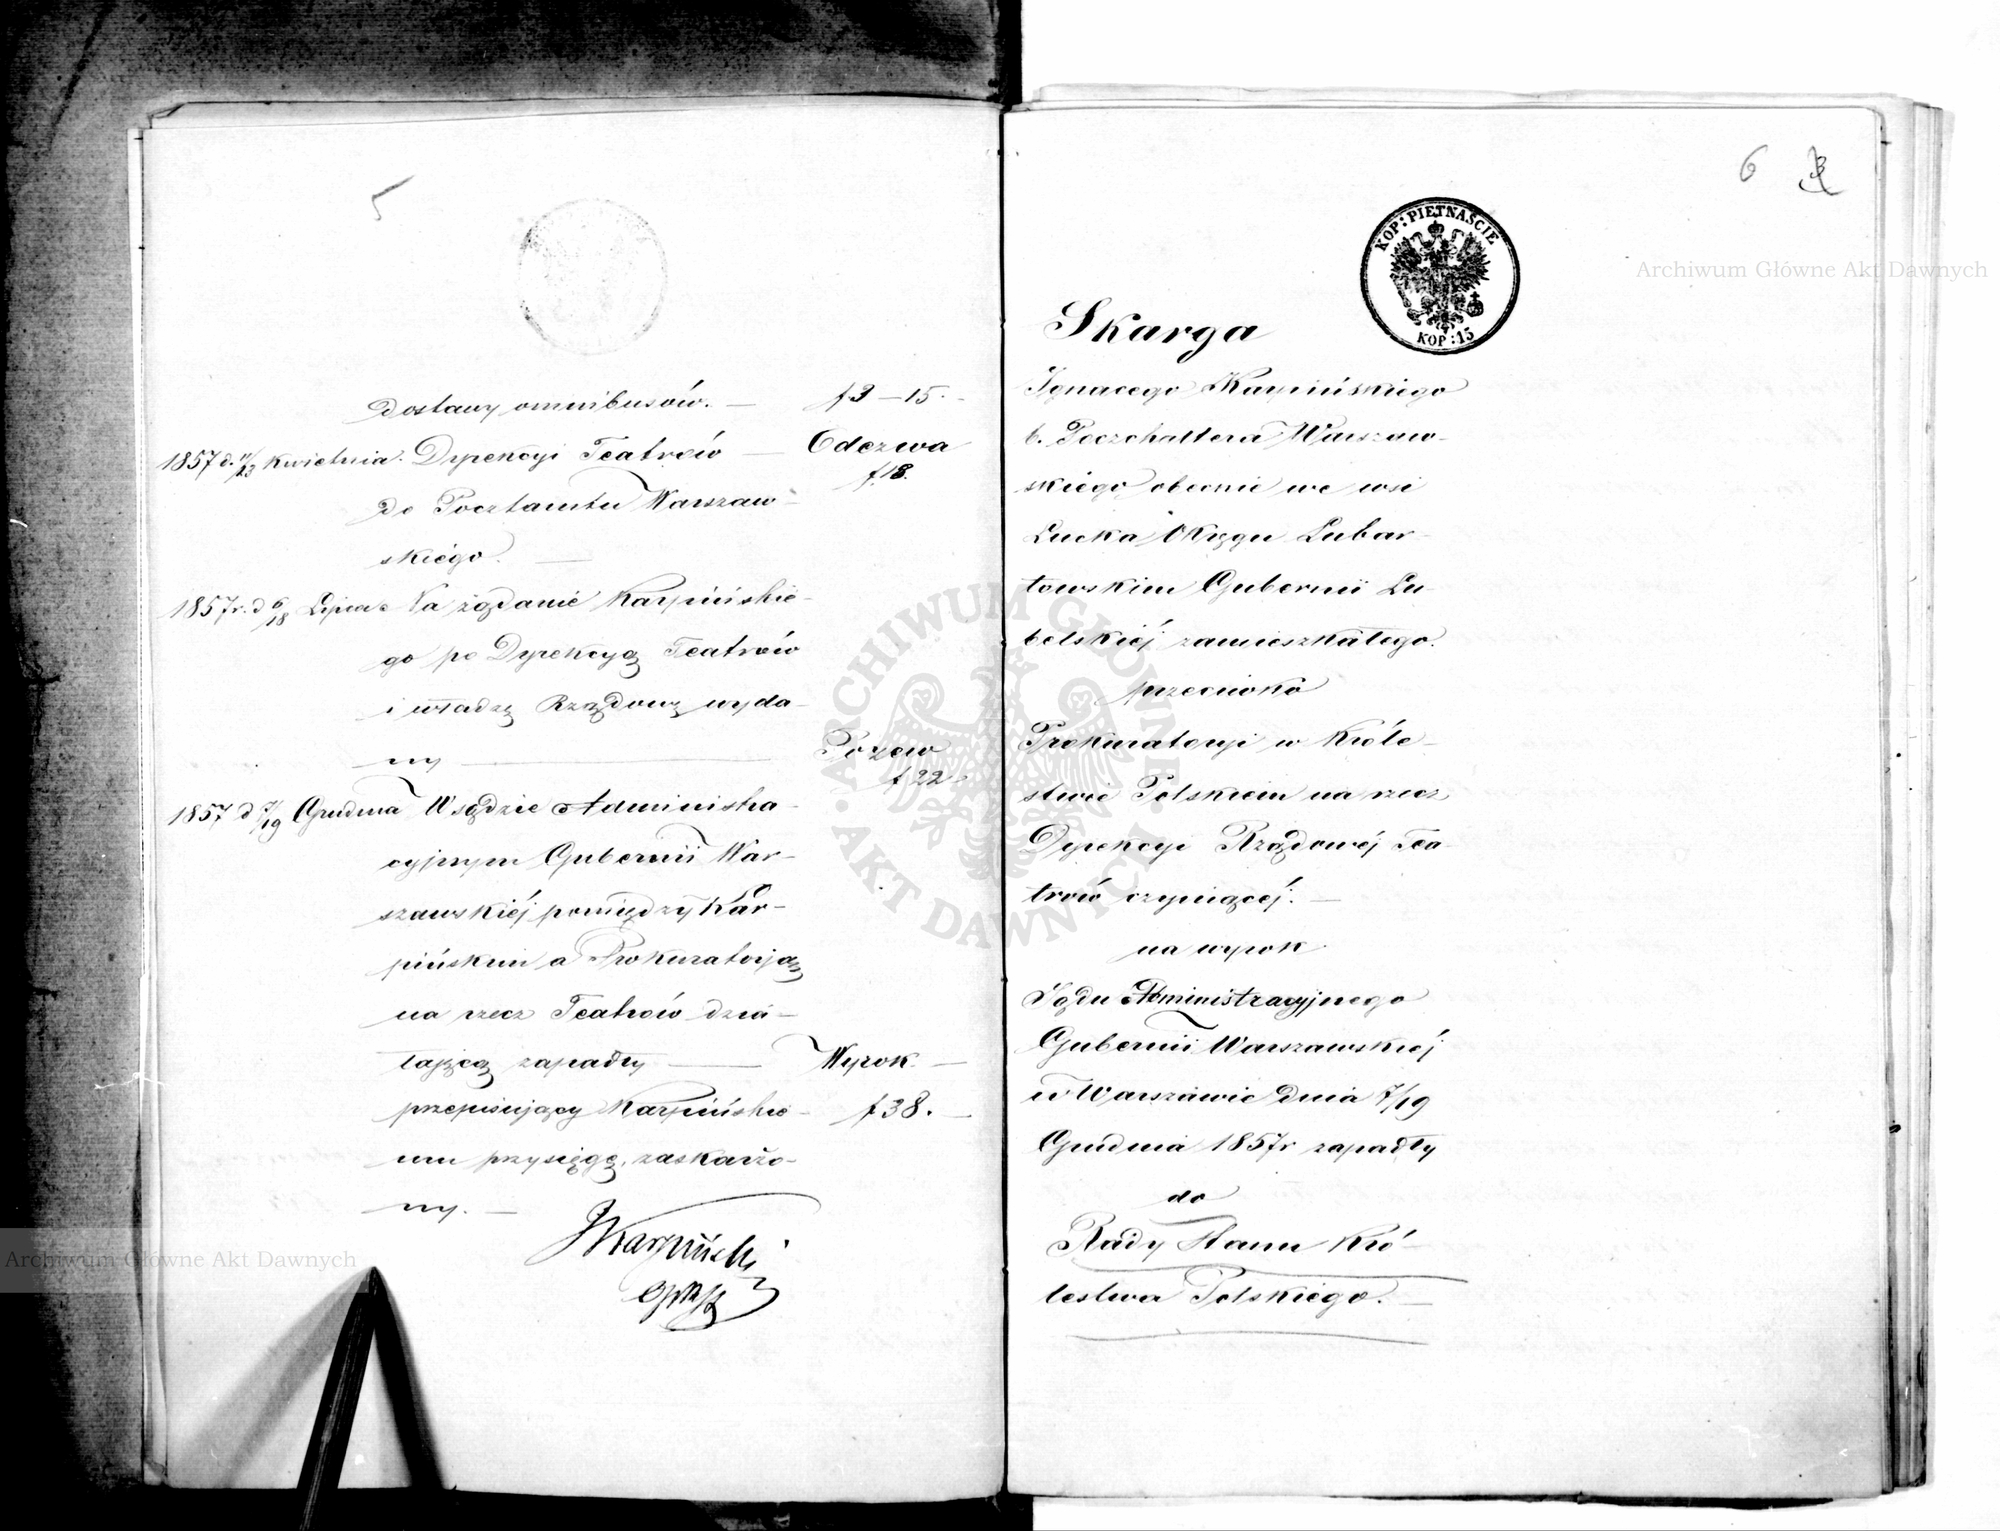 5
dostawy omnibusów. — f 3 — 15. -
1857 d. 11/23 Kwietnia. Dyrekcyi Teatrów — Odezwa
f. 18.
do Pocztamtu Warszaw-
skiego. —
1857 r. d 6/18 Lipca Na żądanie Karpińskie-
go po Dyrekcyą Teatrów
i władzę Rządową wyda-
ny — Pozew
f 22
1857 d 7/19 Grudnia W Sądzie Administra-
cyjnym Gubernii War-
szawskiéj pomiędzy Kar-
pińskim a Prokuratorją
na rzecz Teatrów dzia-
łającą zapadły — Wyrok. —
przepisujący Karpińskie- f 38. —
mu przysięgę, zaskarżo-
ny. —
JKarpiński
6
KOP: PIĘTNAŚCIE
KOP: 15
Skarga
Ignacego Karpińskiego
b. Poczhaltera Warszaw-
skiego obecnie we wsi
Łucka Okręgu Lubar-
towskim Gubernii Lu-
belskiéj zamieszkałego.
przeciwko
Prokuratoryi w Króle-
stwie Polskiem na rzecz
Dyrekcyi Rządowéj Tea-
trów czyniącéj. —
na wyrok
Sądu Administracyjnego
Gubernii Warszawskiéj
w Warszawie dnia 7/19
Grudnia 1857 r zapadły
do
Rady Stanu Kró-
lestwa Polskiego. —
Archiwum Główne Akt Dawnych
ARCHIWUM GŁÓWNE • AKT DAWNYCH •
Archiwum Główne Akt Dawnych